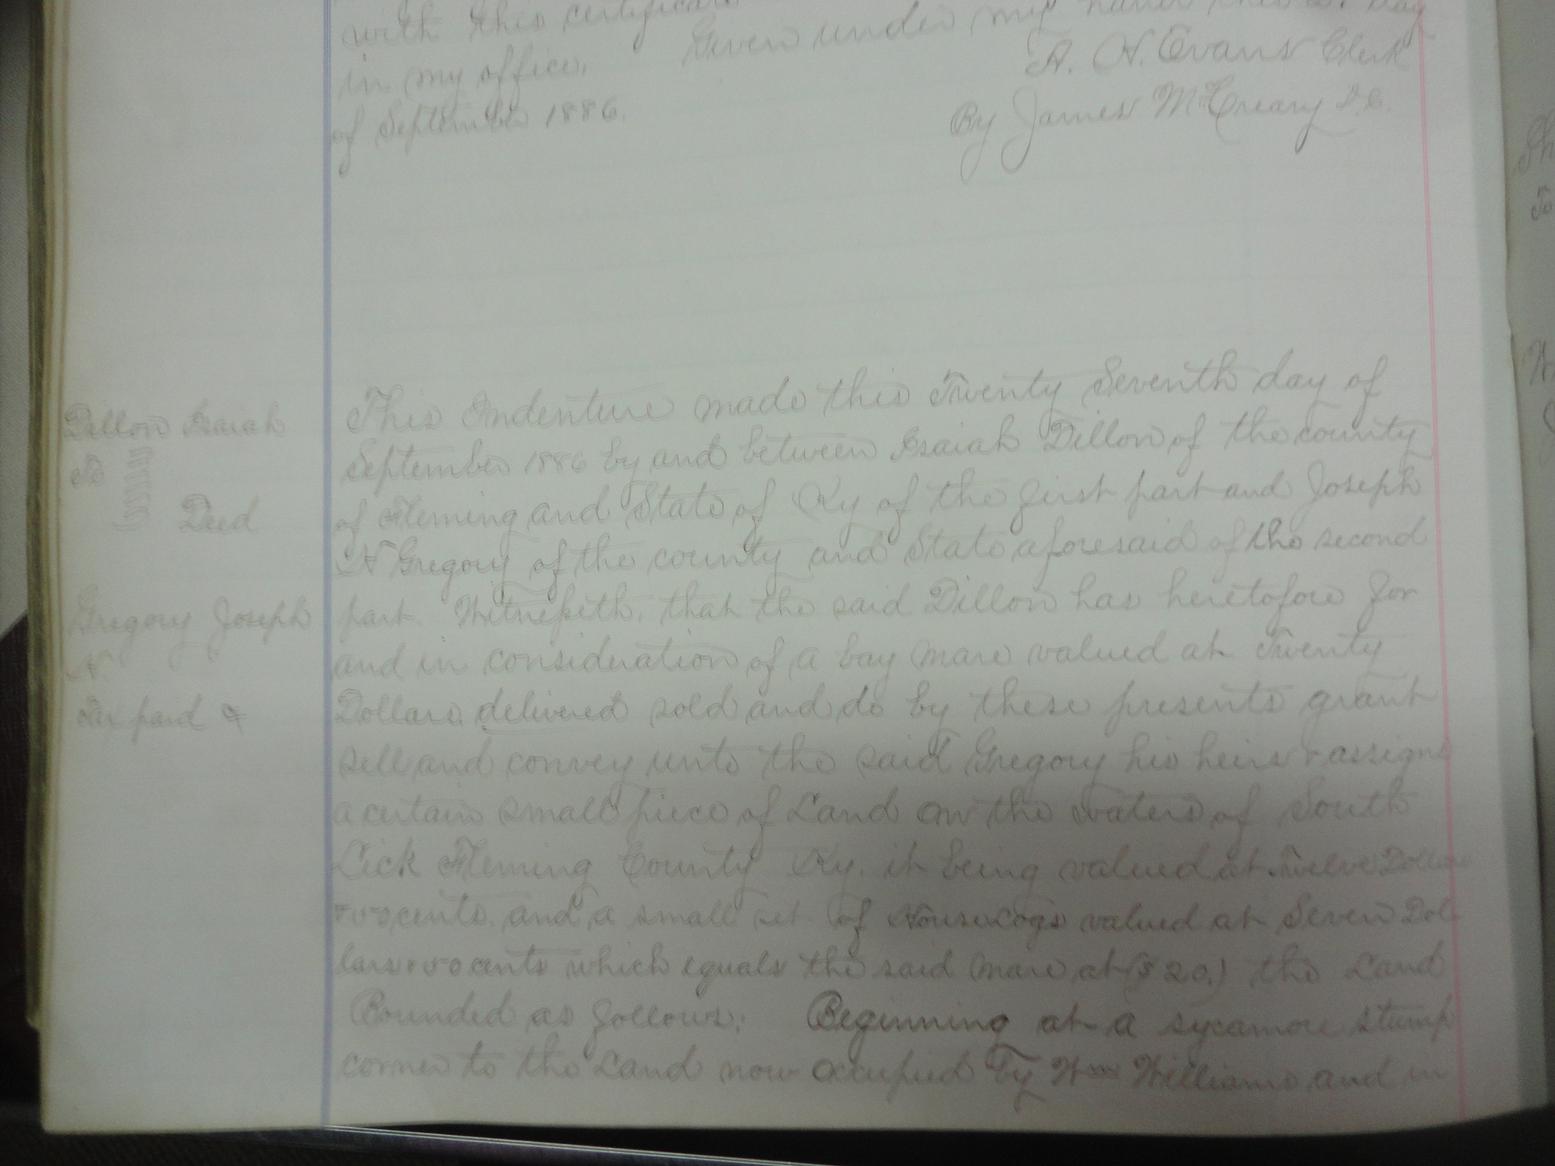 with this certificate
in my office. Given under my hand this day
of September 1886. A. H. Evans Clerk
By James McCreary D.C.
Dillon Isaiah
To
Deed
Gregory Joseph
N.
Tax paid
This Indenture made this Twenty Seventh day of
September 1886 by and between Isaiah Dillon of the county
of Fleming and State of Ky of the first part and Joseph
N Gregory of the county and State aforesaid of the second
part. Witnesseth, that the said Dillon has heretofore for
and in consideration of a bay mare valued at Twenty
Dollars, delivered sold and do by these presents grant
sell and convey unto the said Gregory his heirs & assigns
a certain small piece of Land on the waters of South
Lick Fleming County Ky. it being valued at Twelve Dollars
cents, and a small set of House Logs valued at Seven Dol-
lars cents which equals the said mare at ($20.) the Land
Bounded as follows: Beginning at a sycamore stump
corner to the Land now occupied by Wm Williams and in